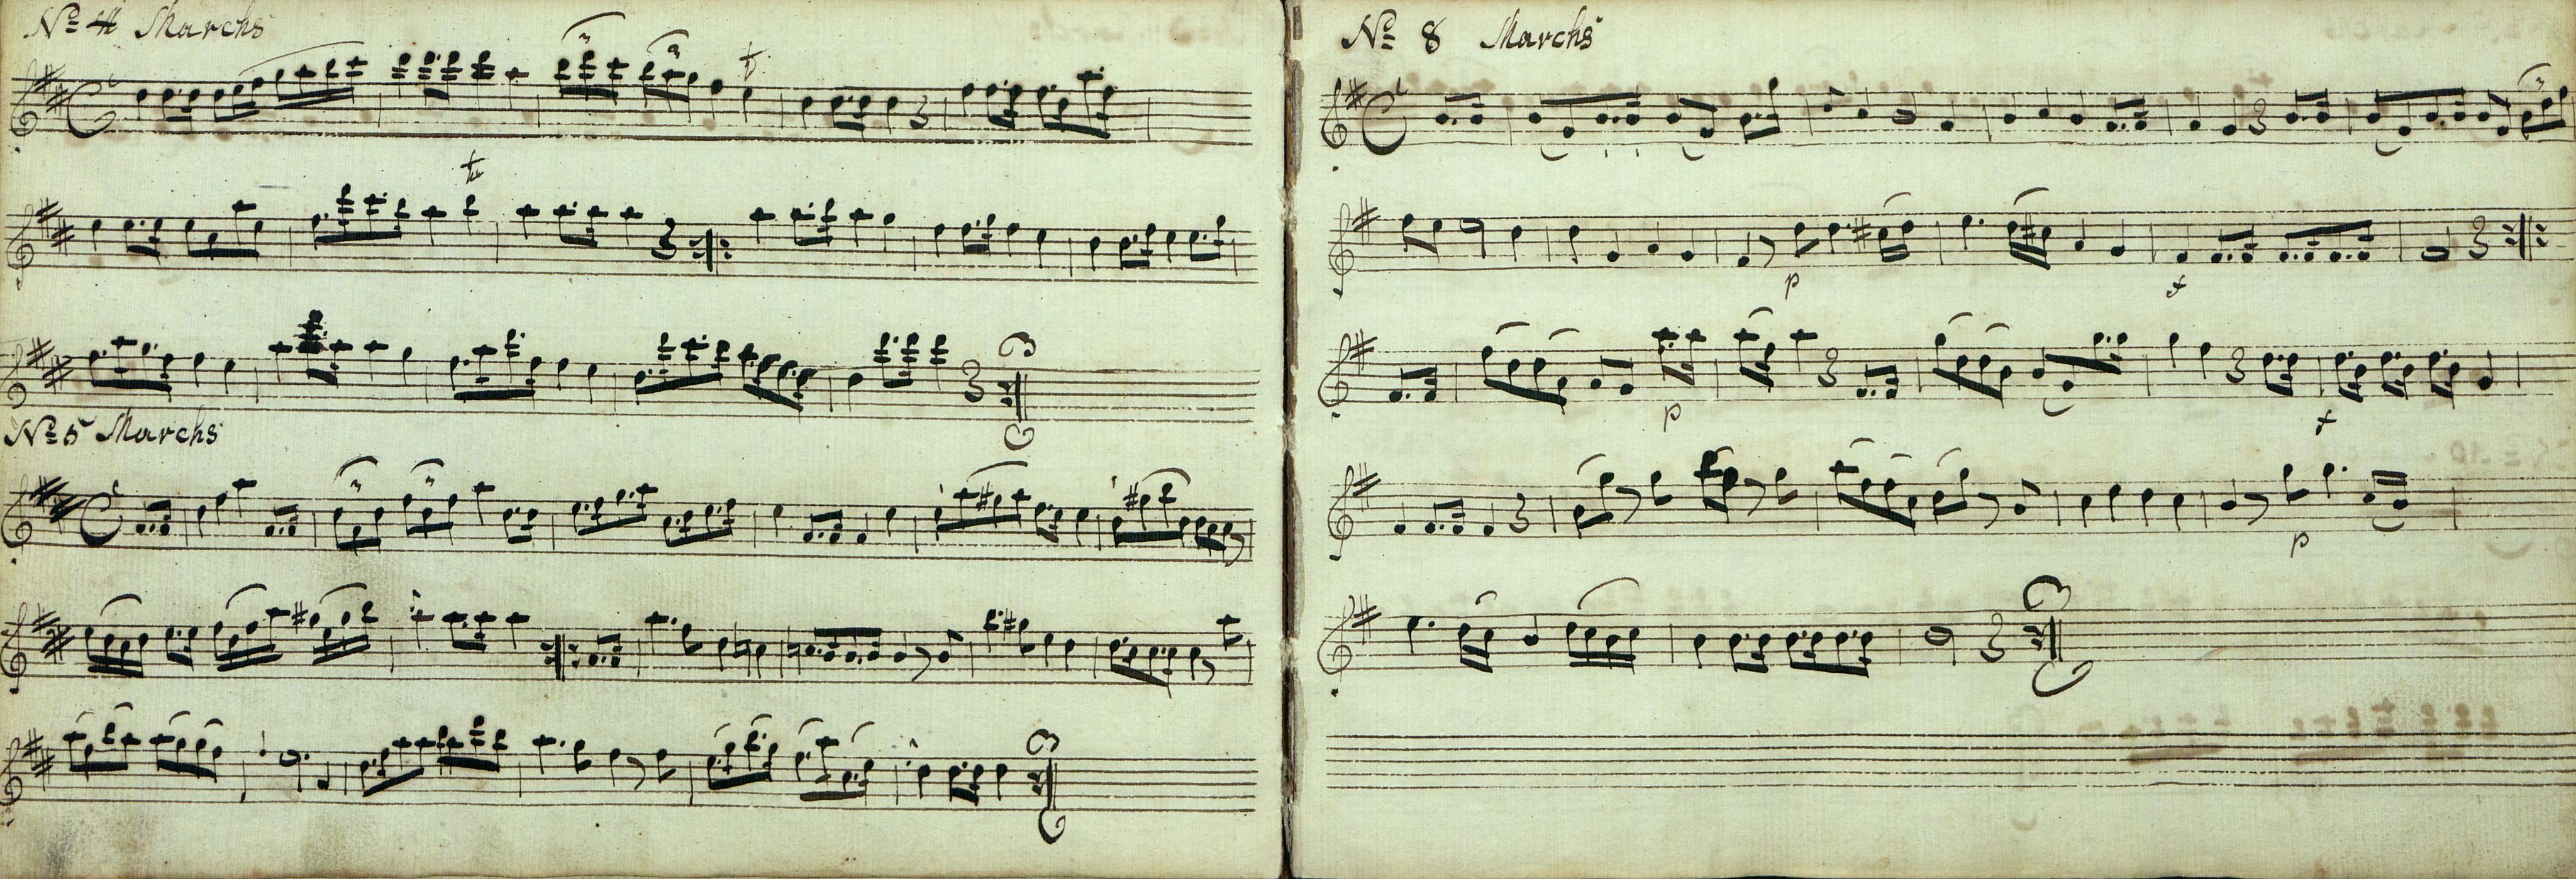 No 4 Marchs
No 5 Marchs
No 8 Marchs
p
f
p
f
p